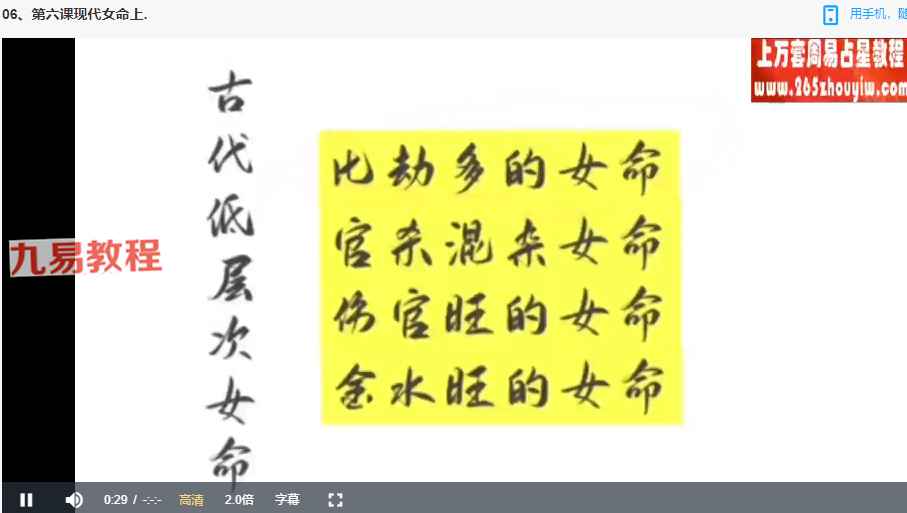 06、第六课现代女命上.
用手机，随
上万套周易占星教程
www.265zhouyiw.com
古代低层次女命
比劫多的女命
官杀混杂女命
伤官旺的女命
金水旺的女命
九易教程
0:29 / -:-:- 高清 2.0倍 字幕